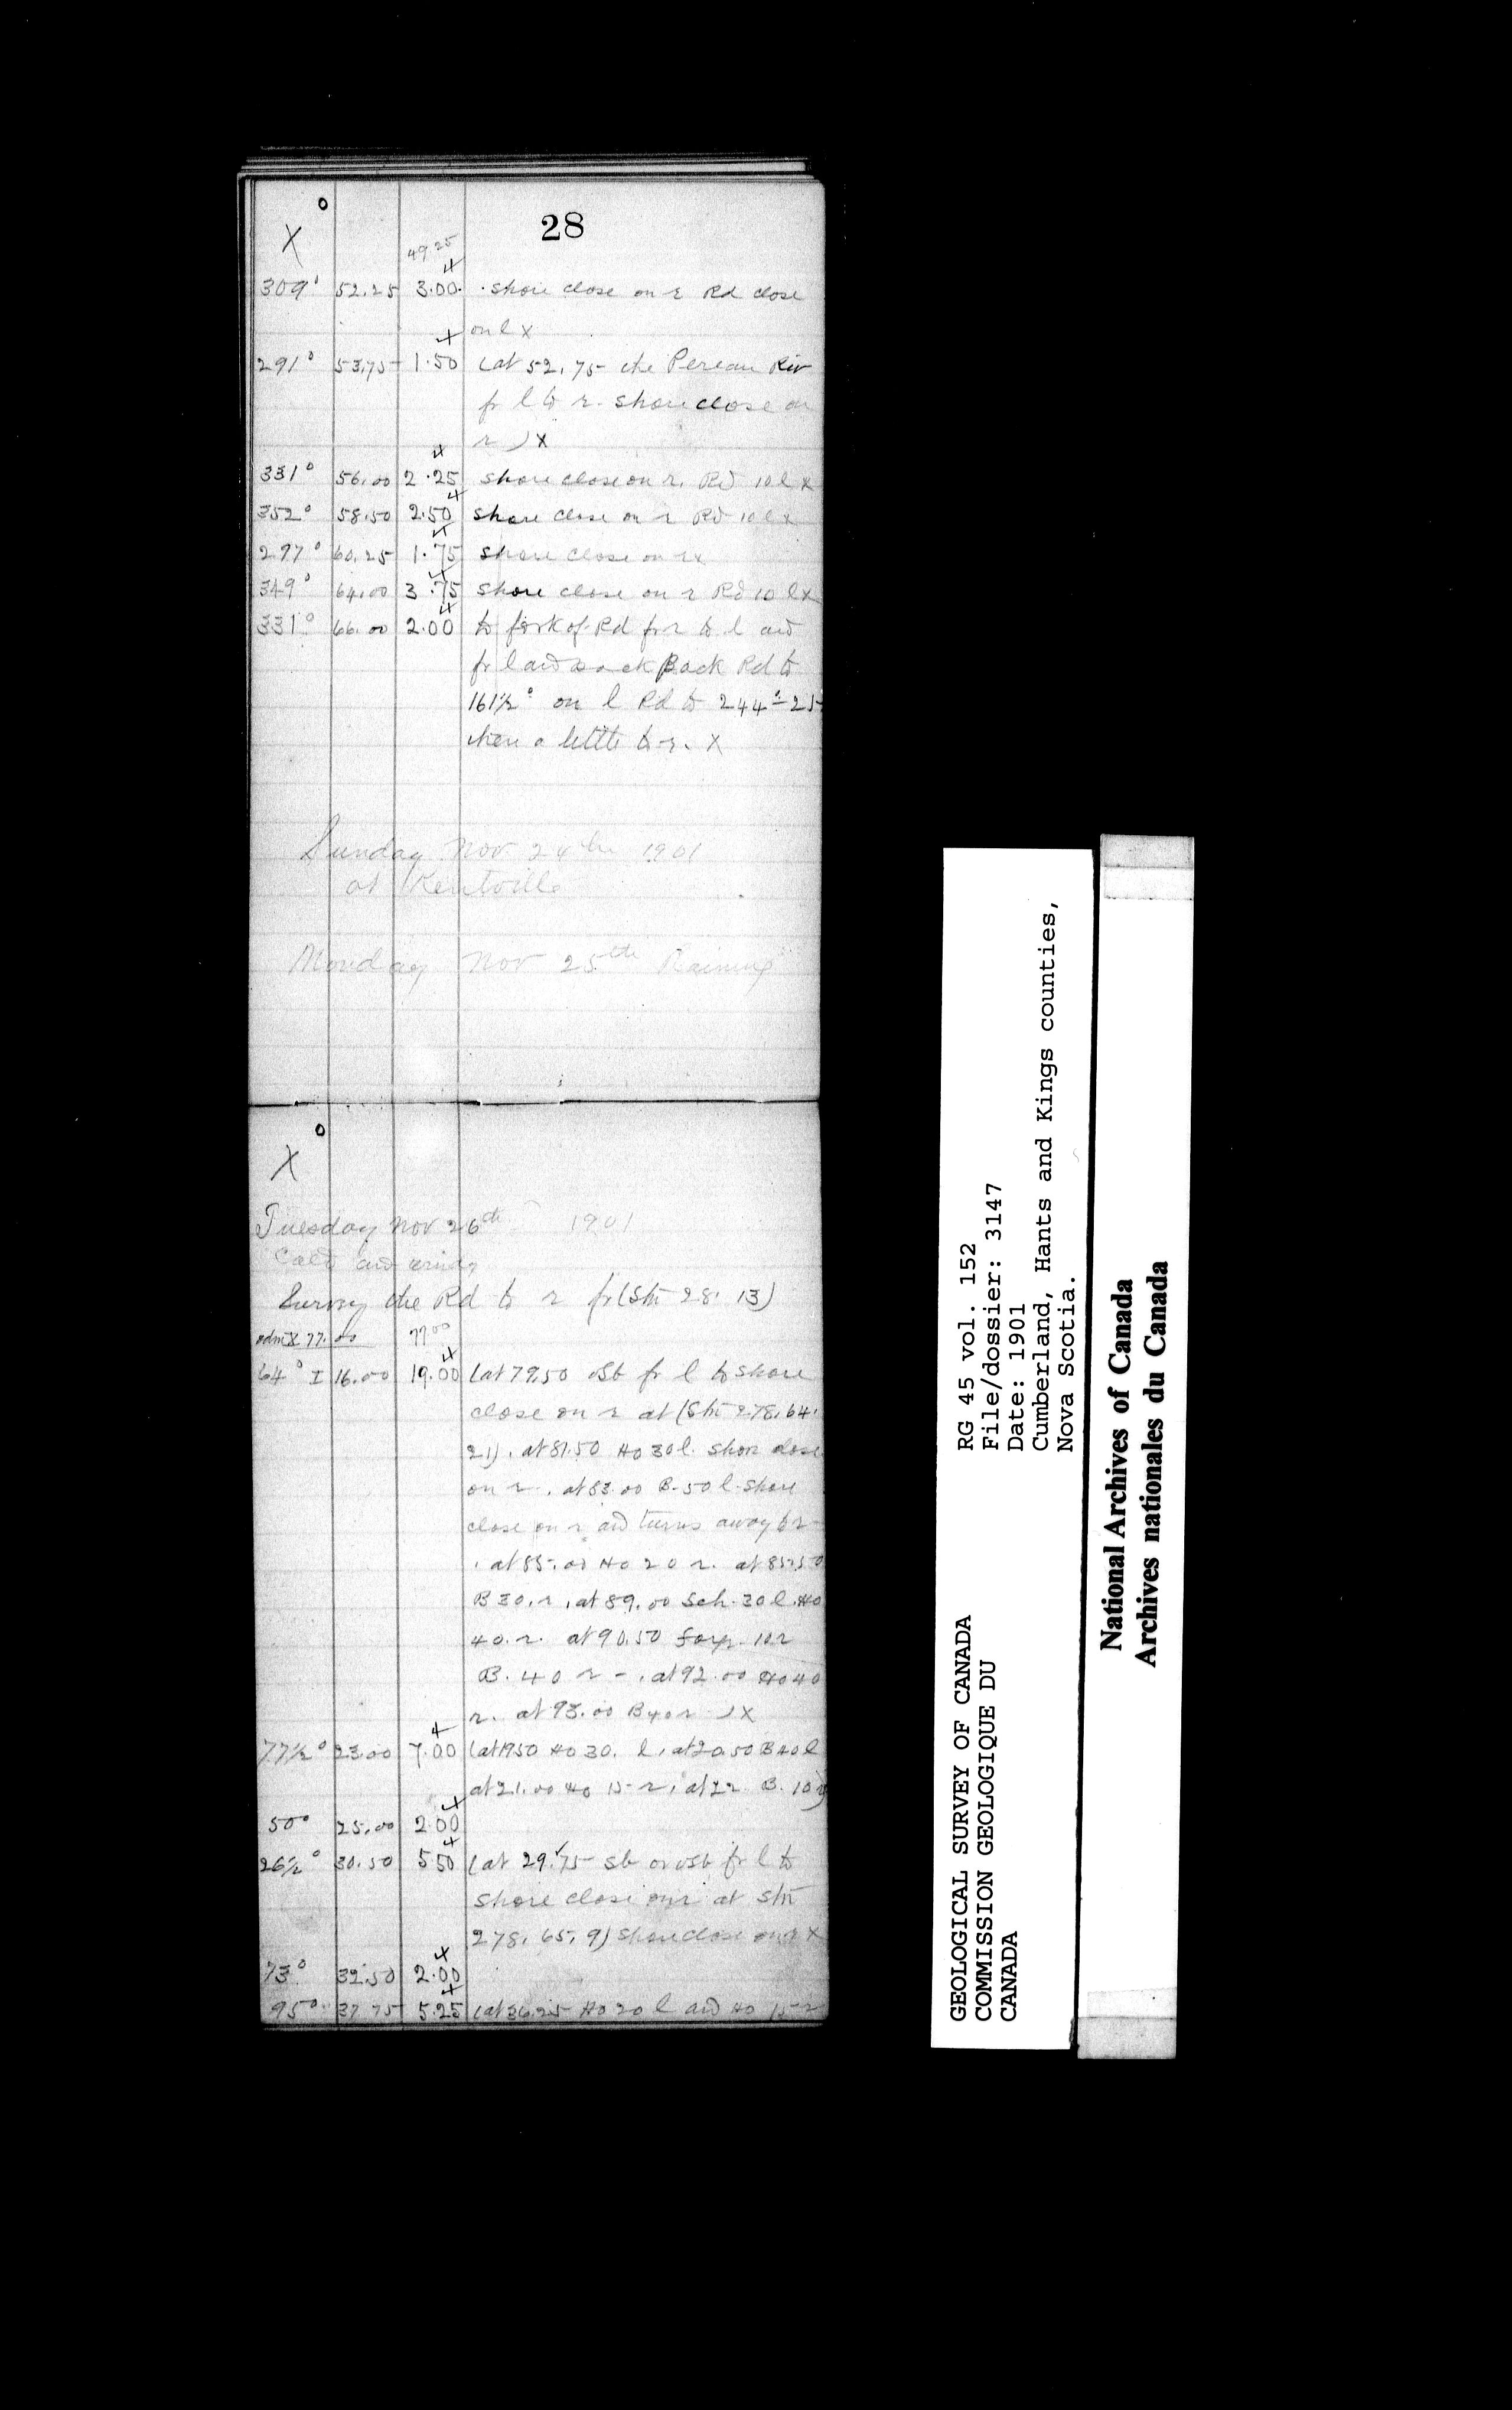 28
X °
49.25
309° 52.25 3.00 shore close on r Rd close
on l x
291° 53.75 1.50 (at 52.75 the Pereau Riv
fr l to r. shore close on
r ) x
331° 56.00 2.25 shore close on r. Rd 10 l x
352° 58.50 2.50 shore close on r Rd 10 l x
297° 60.25 1.75 shore close on r x
349° 64.00 3.75 shore close on r Rd 10 l x
331° 66.00 2.00 to fork of Rd fr r to l and
fr l and back Back Rd to
161½° on l Rd to 244° 25
then a little to r. X
Sunday Nov 24th 1901
at Kentville
Monday Nov 25th Raining
X °
Tuesday Nov 26th 1901
Cold and windy
Survey the Rd to r fr (Stn 28. 13)
odm X 77.00 77.00
64° I 16.00 19.00 (at 79.50 vsb fr l to shore
close on r at (Stn 278.64.
21). at 81.50 Ho 30 l. shore close
on r. at 83.00 B. 50 l. shore
close on r and turns away to r
. at 85.00 Ho 20 r. at 85.50
B 30. r. at 89.00 Sch. 30 l. Ho
40. r. at 90.50 10 r
B. 40 r - . at 92.00 Ho 40
r. at 93.00 B 40 r ) X
77½° 23.00 7.00 (at 19.50 Ho 30. l. at 20.50 B 40 l
at 21.00 Ho 15 r. at 22 B. 10 r)
50° 25.00 2.00
26½° 30.50 5.50 (at 29.75 sb or vsb fr l to
shore close on r at Stn
278. 65. 9) shore close on r X
73° 32.50 2.00
95° 37.75 5.25 (at 36.25 Ho 20 l and Ho 15 r
GEOLOGICAL SURVEY OF CANADA
COMMISSION GEOLOGIQUE DU
CANADA
RG 45 vol. 152
File/dossier: 3147
Date: 1901
Cumberland, Hants and Kings counties,
Nova Scotia.
National Archives of Canada
Archives nationales du Canada